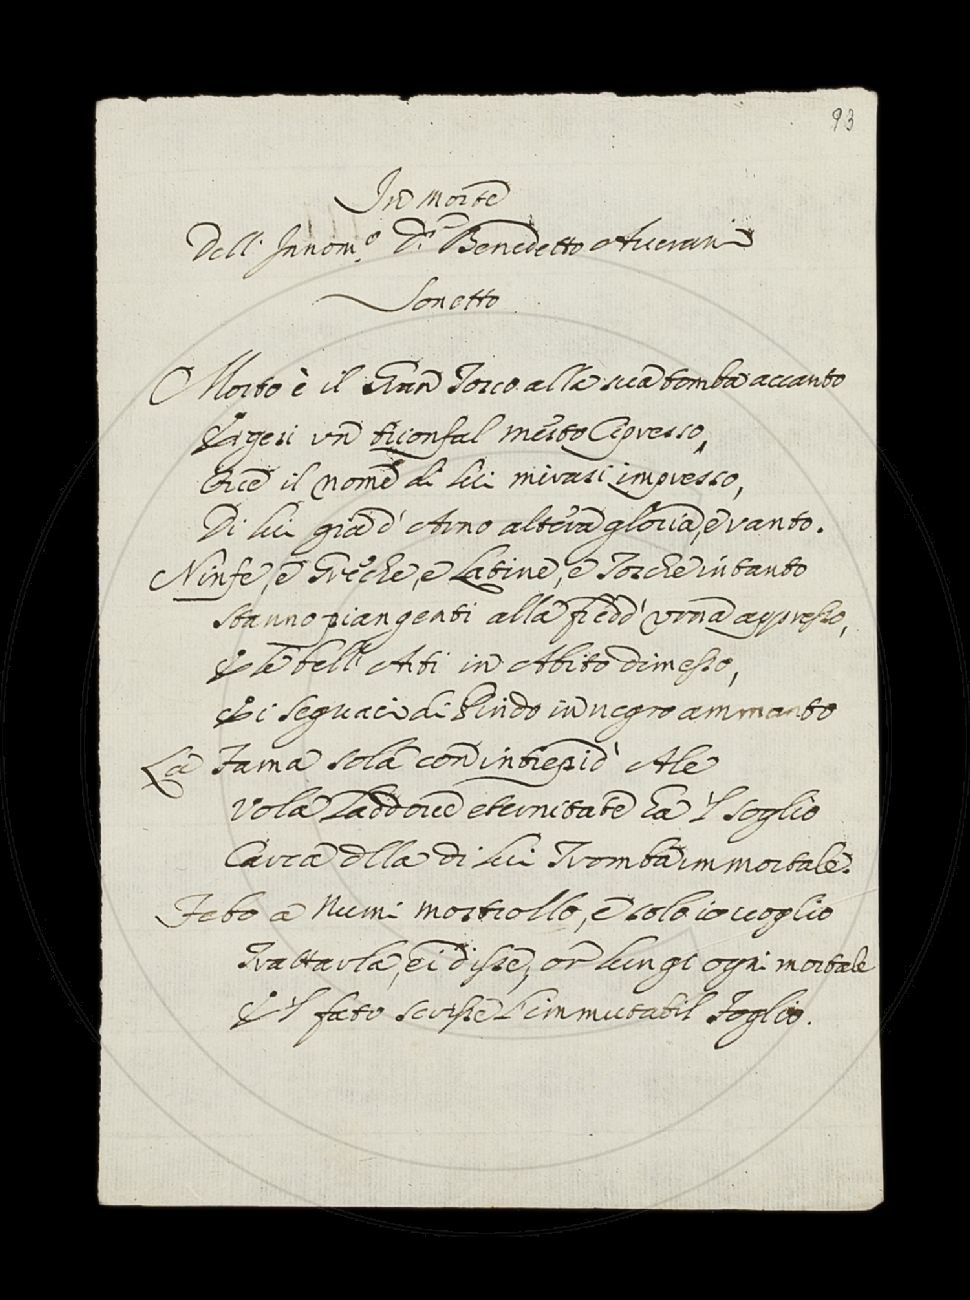 93
In Morte
Dell' Innom.º D.r Benedetto Averani
Sonetto
Morto è il Gran Tosco alla sua tomba accanto
Ergesi un trionfal mesto Cipresso,
Ove il nome di lui mirasi impresso,
Di lui già d'Arno altera gloria, e vanto.
Ninfe, e Greche, e Latine, e Tosche intanto
stanno piangenti alla fredd' urna appresso,
E le bell' Arti in Abito dimesso,
E i seguaci di Pindo in negro ammanto
La Fama sola con intrepid' Ale
Vola Laddove eternitate ha 'l soglio
Carca della di lui Tromba immortale.
Fato a Numi mostrollo, e solo io voglio
Trattarla, ei disse, or lungi ogni mortale
E 'l fato scrisse L'immutabil Foglio.